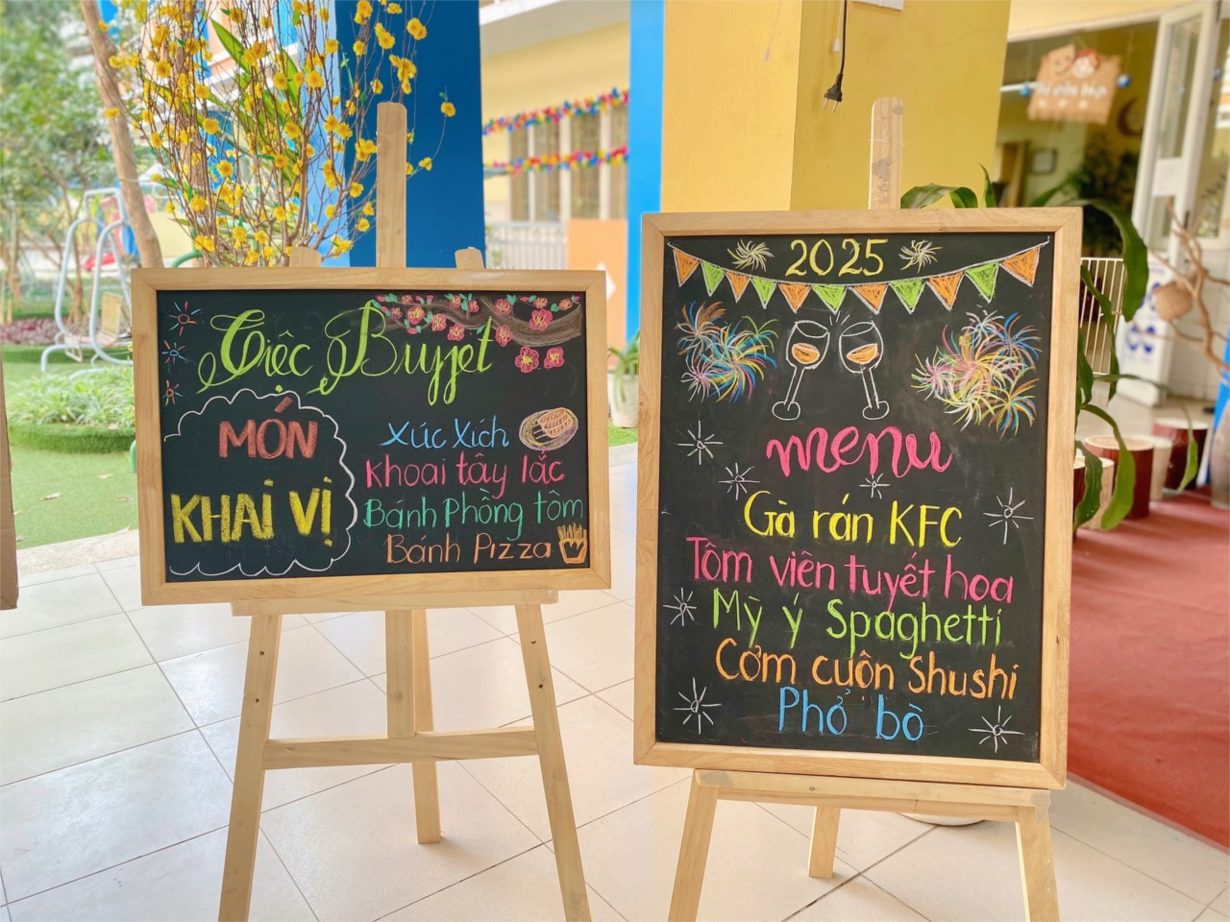 Tiệc Buffet
MÓN
KHAI VỊ
Xúc Xích
Khoai tây lắc
Bánh Phồng tôm
Bánh Pizza
2025
menu
Gà rán KFC
Tôm viên tuyết hoa
Mỳ ý Spaghetti
Cơm cuộn Shushi
Phở bò